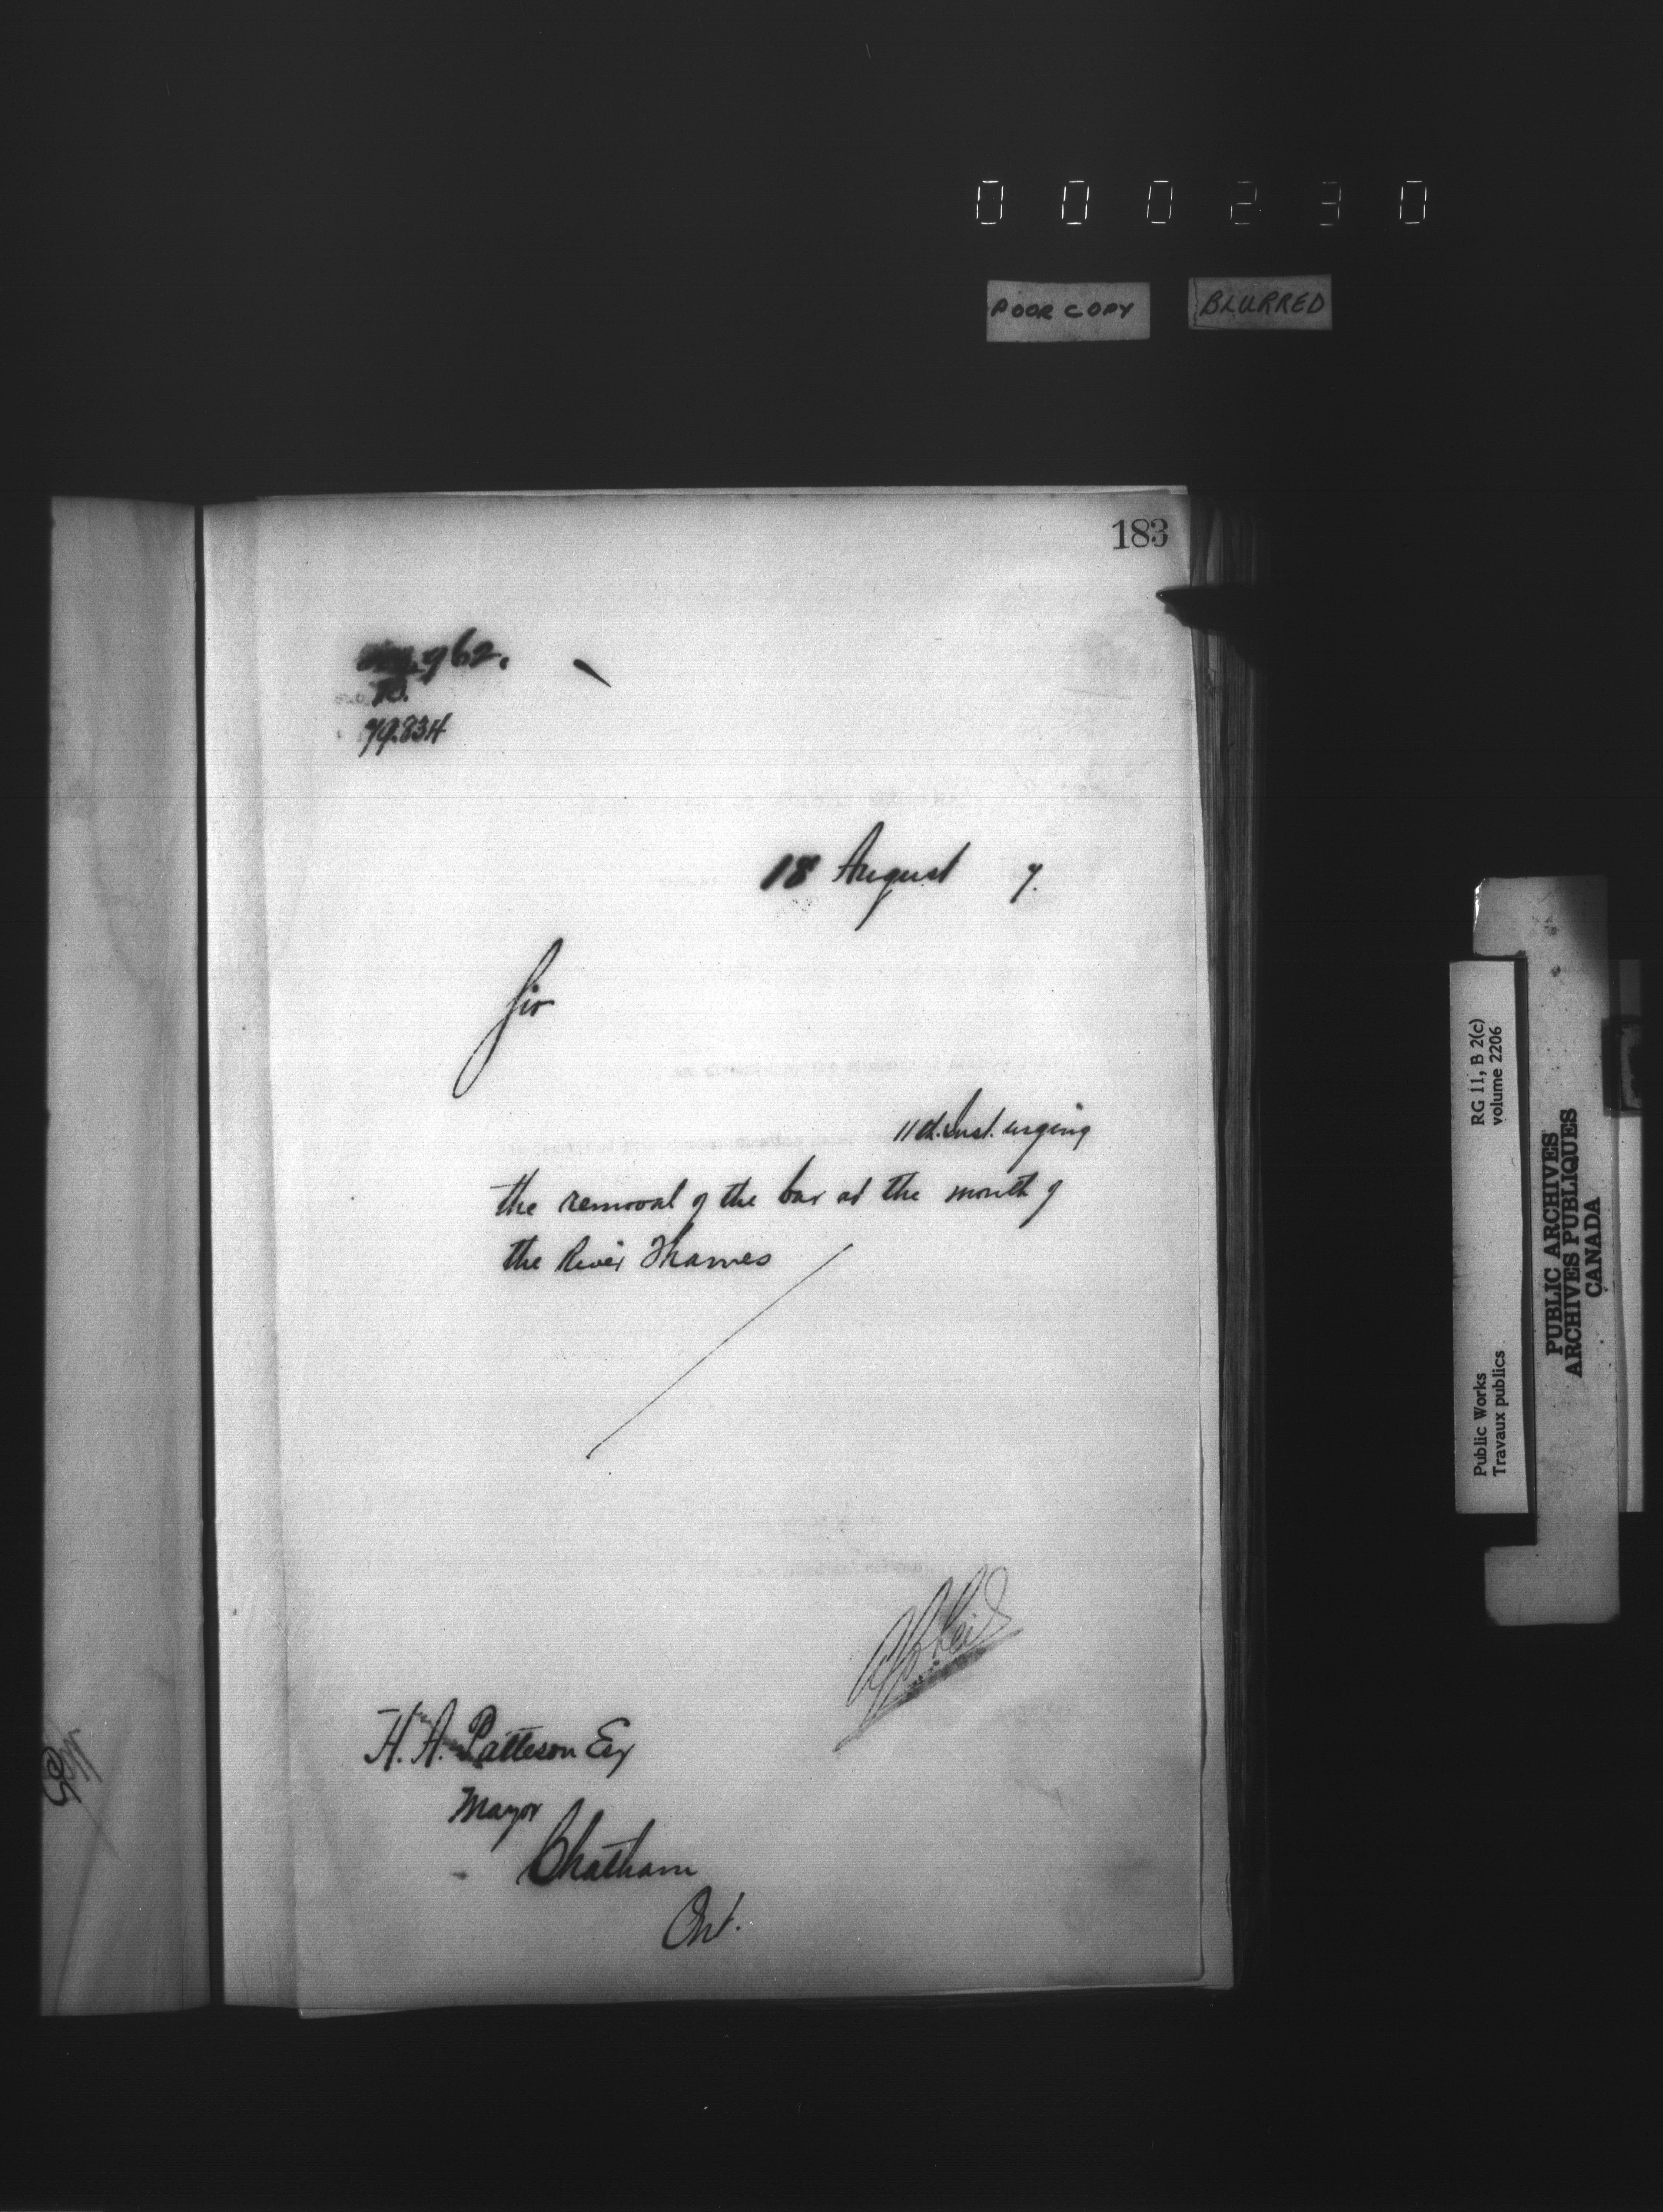 000230
POOR COPY BLURRED
183
962.
79.834
18 August 7.
Sir
11th. Inst. urging
the removal of the bar at the mouth of
the River Thames
H. A. Patteson Esq
Mayor
Chatham
Ont.
RG 11, B 2(c)
volume 2206
Public Works
Travaux publics
PUBLIC ARCHIVES
ARCHIVES PUBLIQUES
CANADA